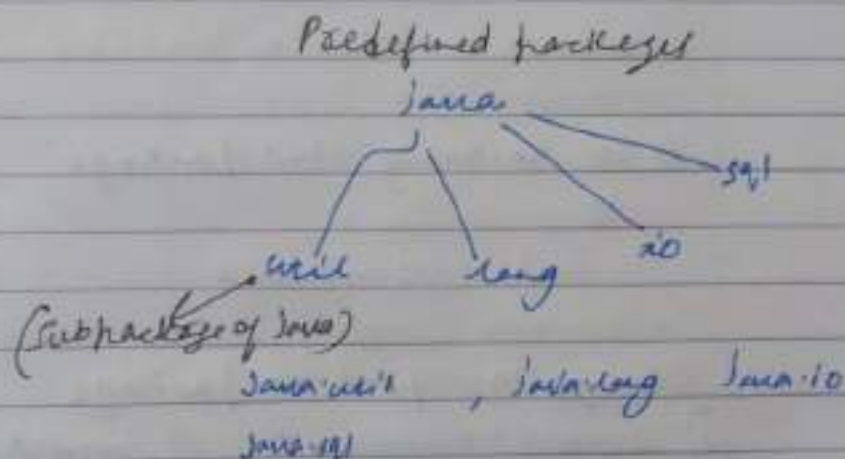 Predefined packages
java
sql
util lang io
(Subpackage of Java)
Java.util , java.lang Java.io
Java.sql